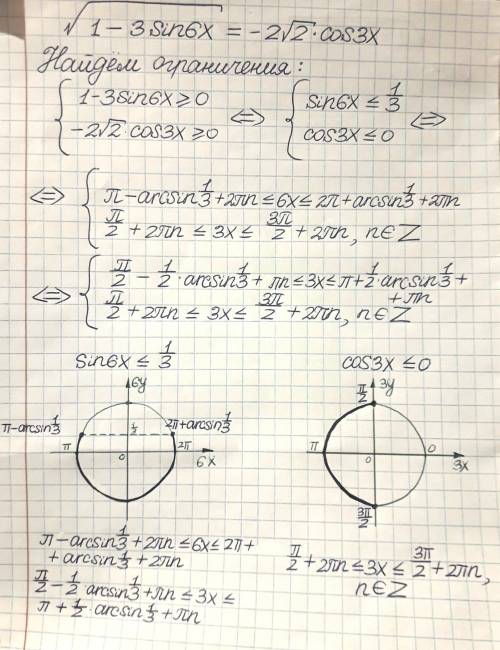 √(1-3sin6x) = -2√2·cos3x
Найдём ограничения:
{ 1-3sin6x ≥ 0
-2√2·cos3x ≥ 0 <=> { sin6x ≤ 1/3
cos3x ≤ 0 <=>
<=> { π-arcsin1/3+2πn ≤ 6x ≤ 2π+arcsin1/3+2πn
π/2+2πn ≤ 3x ≤ 3π/2+2πn, n∈Z
<=> { π/2-1/2·arcsin1/3+πn ≤ 3x ≤ π+1/2·arcsin1/3+
+πn
π/2+2πn ≤ 3x ≤ 3π/2+2πn, n∈Z
sin6x ≤ 1/3
6y
π-arcsin1/3
1/3
2π+arcsin1/3
π
0
2π
6x
cos3x ≤ 0
π/2
3y
π
0
0
3x
3π/2
π-arcsin1/3+2πn ≤ 6x ≤ 2π+
+arcsin1/3+2πn
π/2-1/2·arcsin1/3+πn ≤ 3x ≤
π+1/2·arcsin1/3+πn
π/2+2πn ≤ 3x ≤ 3π/2+2πn,
n∈Z